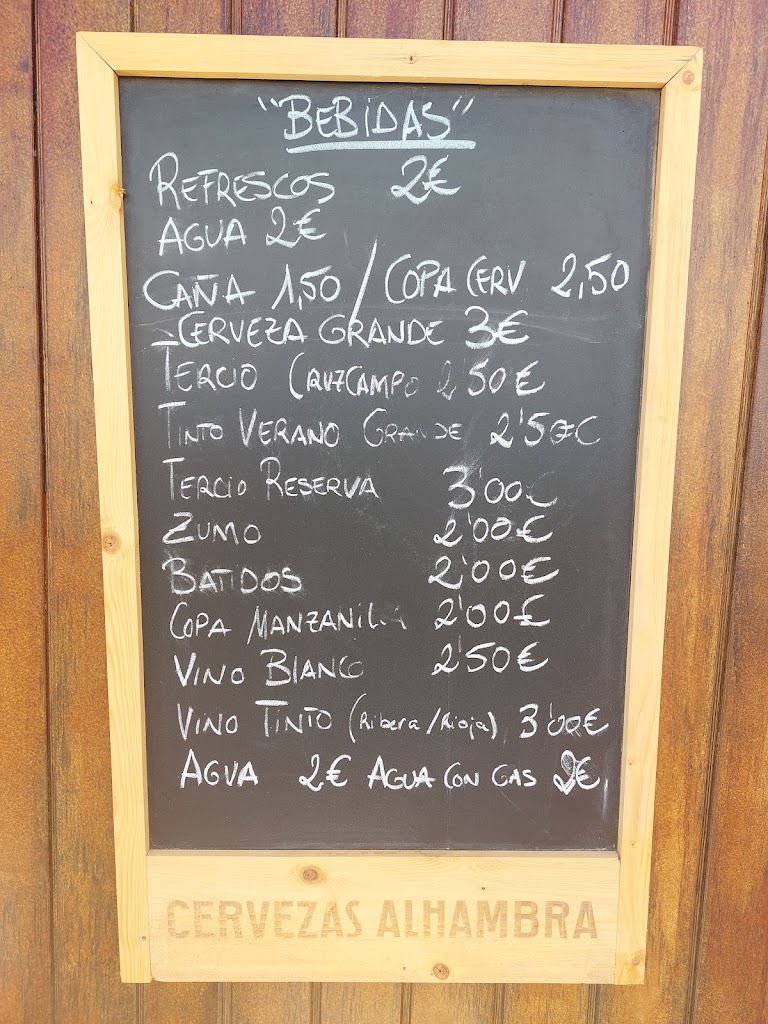 "BEBIDAS"
REFRESCOS 2€
AGUA 2€
CAÑA 1,50 / COPA CERV 2,50
-CERVEZA GRANDE 3€
TERCIO CRUZCAMPO 2'50€
TINTO VERANO GRANDE 2'50€
TERCIO RESERVA 3'00€
ZUMO 2'00€
BATIDOS 2'00€
COPA MANZANILLA 2'00€
VINO BLANCO 2'50€
VINO TINTO (Ribera/Rioja) 3'00€
AGUA 2€ AGUA CON GAS 2€
CERVEZAS ALHAMBRA